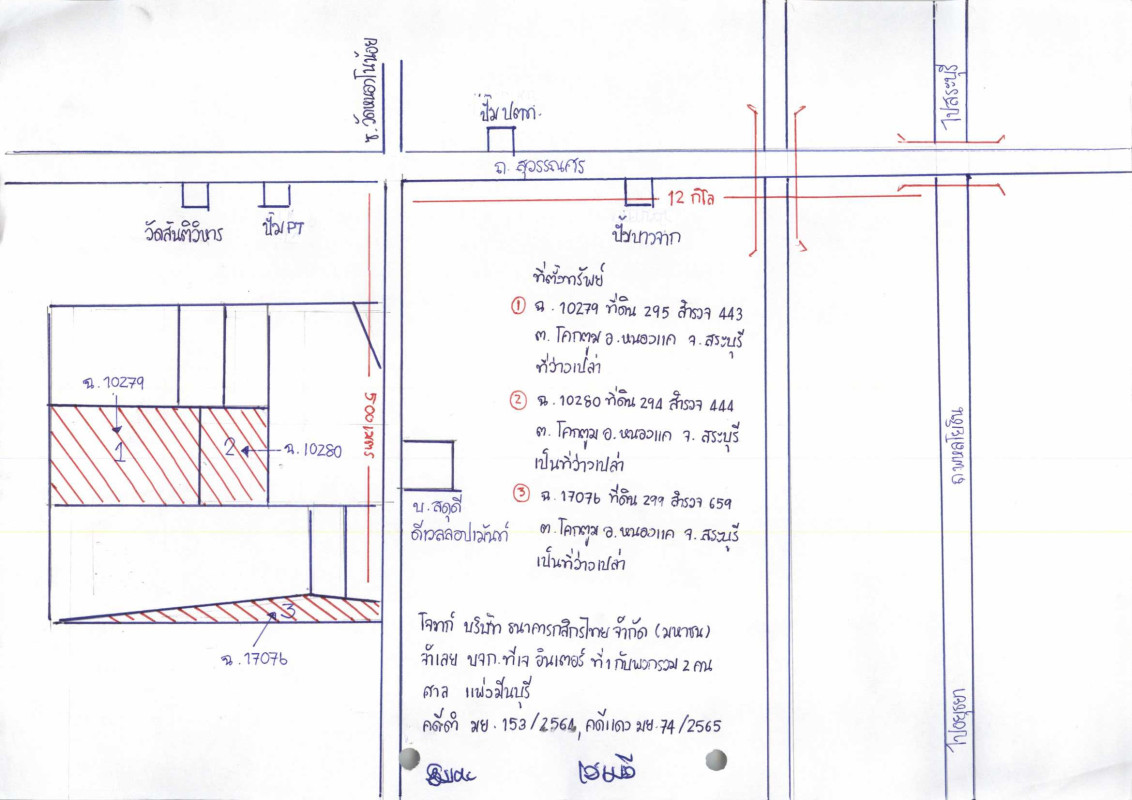 ซ.วัดหนองโนน้อย
ไปสระบุรี
ปั๊ม ปตท.
ถ. สุวรรณศร
12 กิโล
วัดสันติวิหาร
ปั๊ม PT
ปั๊มบางจาก
ที่ตั้งทรัพย์
① ฉ. 10279 ที่ดิน 295 สำรวจ 443
ต. โคกตูม อ.หนองแค จ. สระบุรี
ที่ว่างเปล่า
② ฉ. 10280 ที่ดิน 294 สำรวจ 444
ต. โคกตูม อ.หนองแค จ. สระบุรี
เป็นที่ว่างเปล่า
③ ฉ. 17076 ที่ดิน 299 สำรวจ 659
ต. โคกตูม อ.หนองแค จ.สระบุรี
เป็นที่ว่างเปล่า
ฉ. 10279
1
2
ฉ. 10280
500 เมตร
บ. สดุดี
ดีเวลลอปเม้นท์
3
ฉ. 17076
ถ.พหลโยธิน
ไปอยุธยา
โจทก์ บริษัท ธนาคารกสิกรไทย จำกัด (มหาชน)
จำเลย บจก.ทีเจ อินเตอร์ ที่ 1 กับพวกรวม 2 คน
ศาล แพ่งมีนบุรี
คดีดำ มย. 153/2564, คดีแดง มย.74/2565